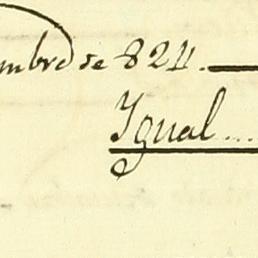 mbre de 824.
Igual....